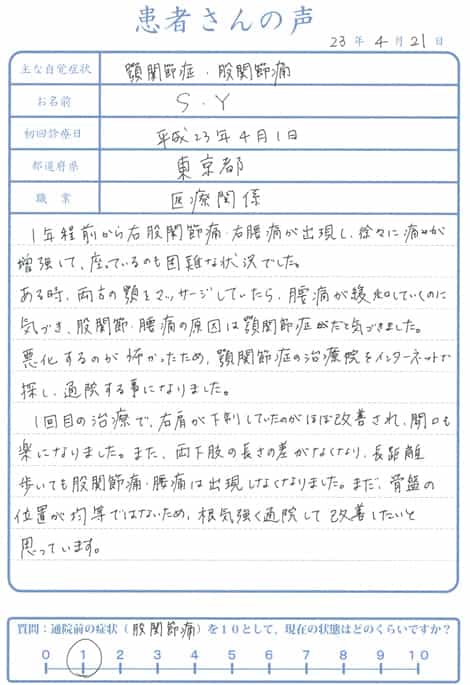 患者さんの声
23年4月21日
主な自覚症状 顎関節症・股関節痛
お名前 S.Y
初回診療日 平成23年4月1日
都道府県 東京都
職業 医療関係
1年程前から右股関節痛・右腰痛が出現し、徐々に痛みが
増強して、座っているのも困難な状況でした。
ある時、両方の顎をマッサージしていたら、腰痛が緩和していくのに
気づき、股関節・腰痛の原因は顎関節症だと気づきました。
悪化するのが怖かったため、顎関節症の治療院をインターネットで
探し、通院する事になりました。
1回目の治療で、右肩が下制していたのがほぼ改善され、開口も
楽になりました。また、両下肢の長さの差がなくなり、長距離
歩いても股関節痛・腰痛は出現しなくなりました。まだ、骨盤の
位置が均等ではないため、根気強く通院して改善したいと
思っています。
質問:通院前の症状(股関節痛)を10として、現在の状態はどのくらいですか?
0 1 2 3 4 5 6 7 8 9 10